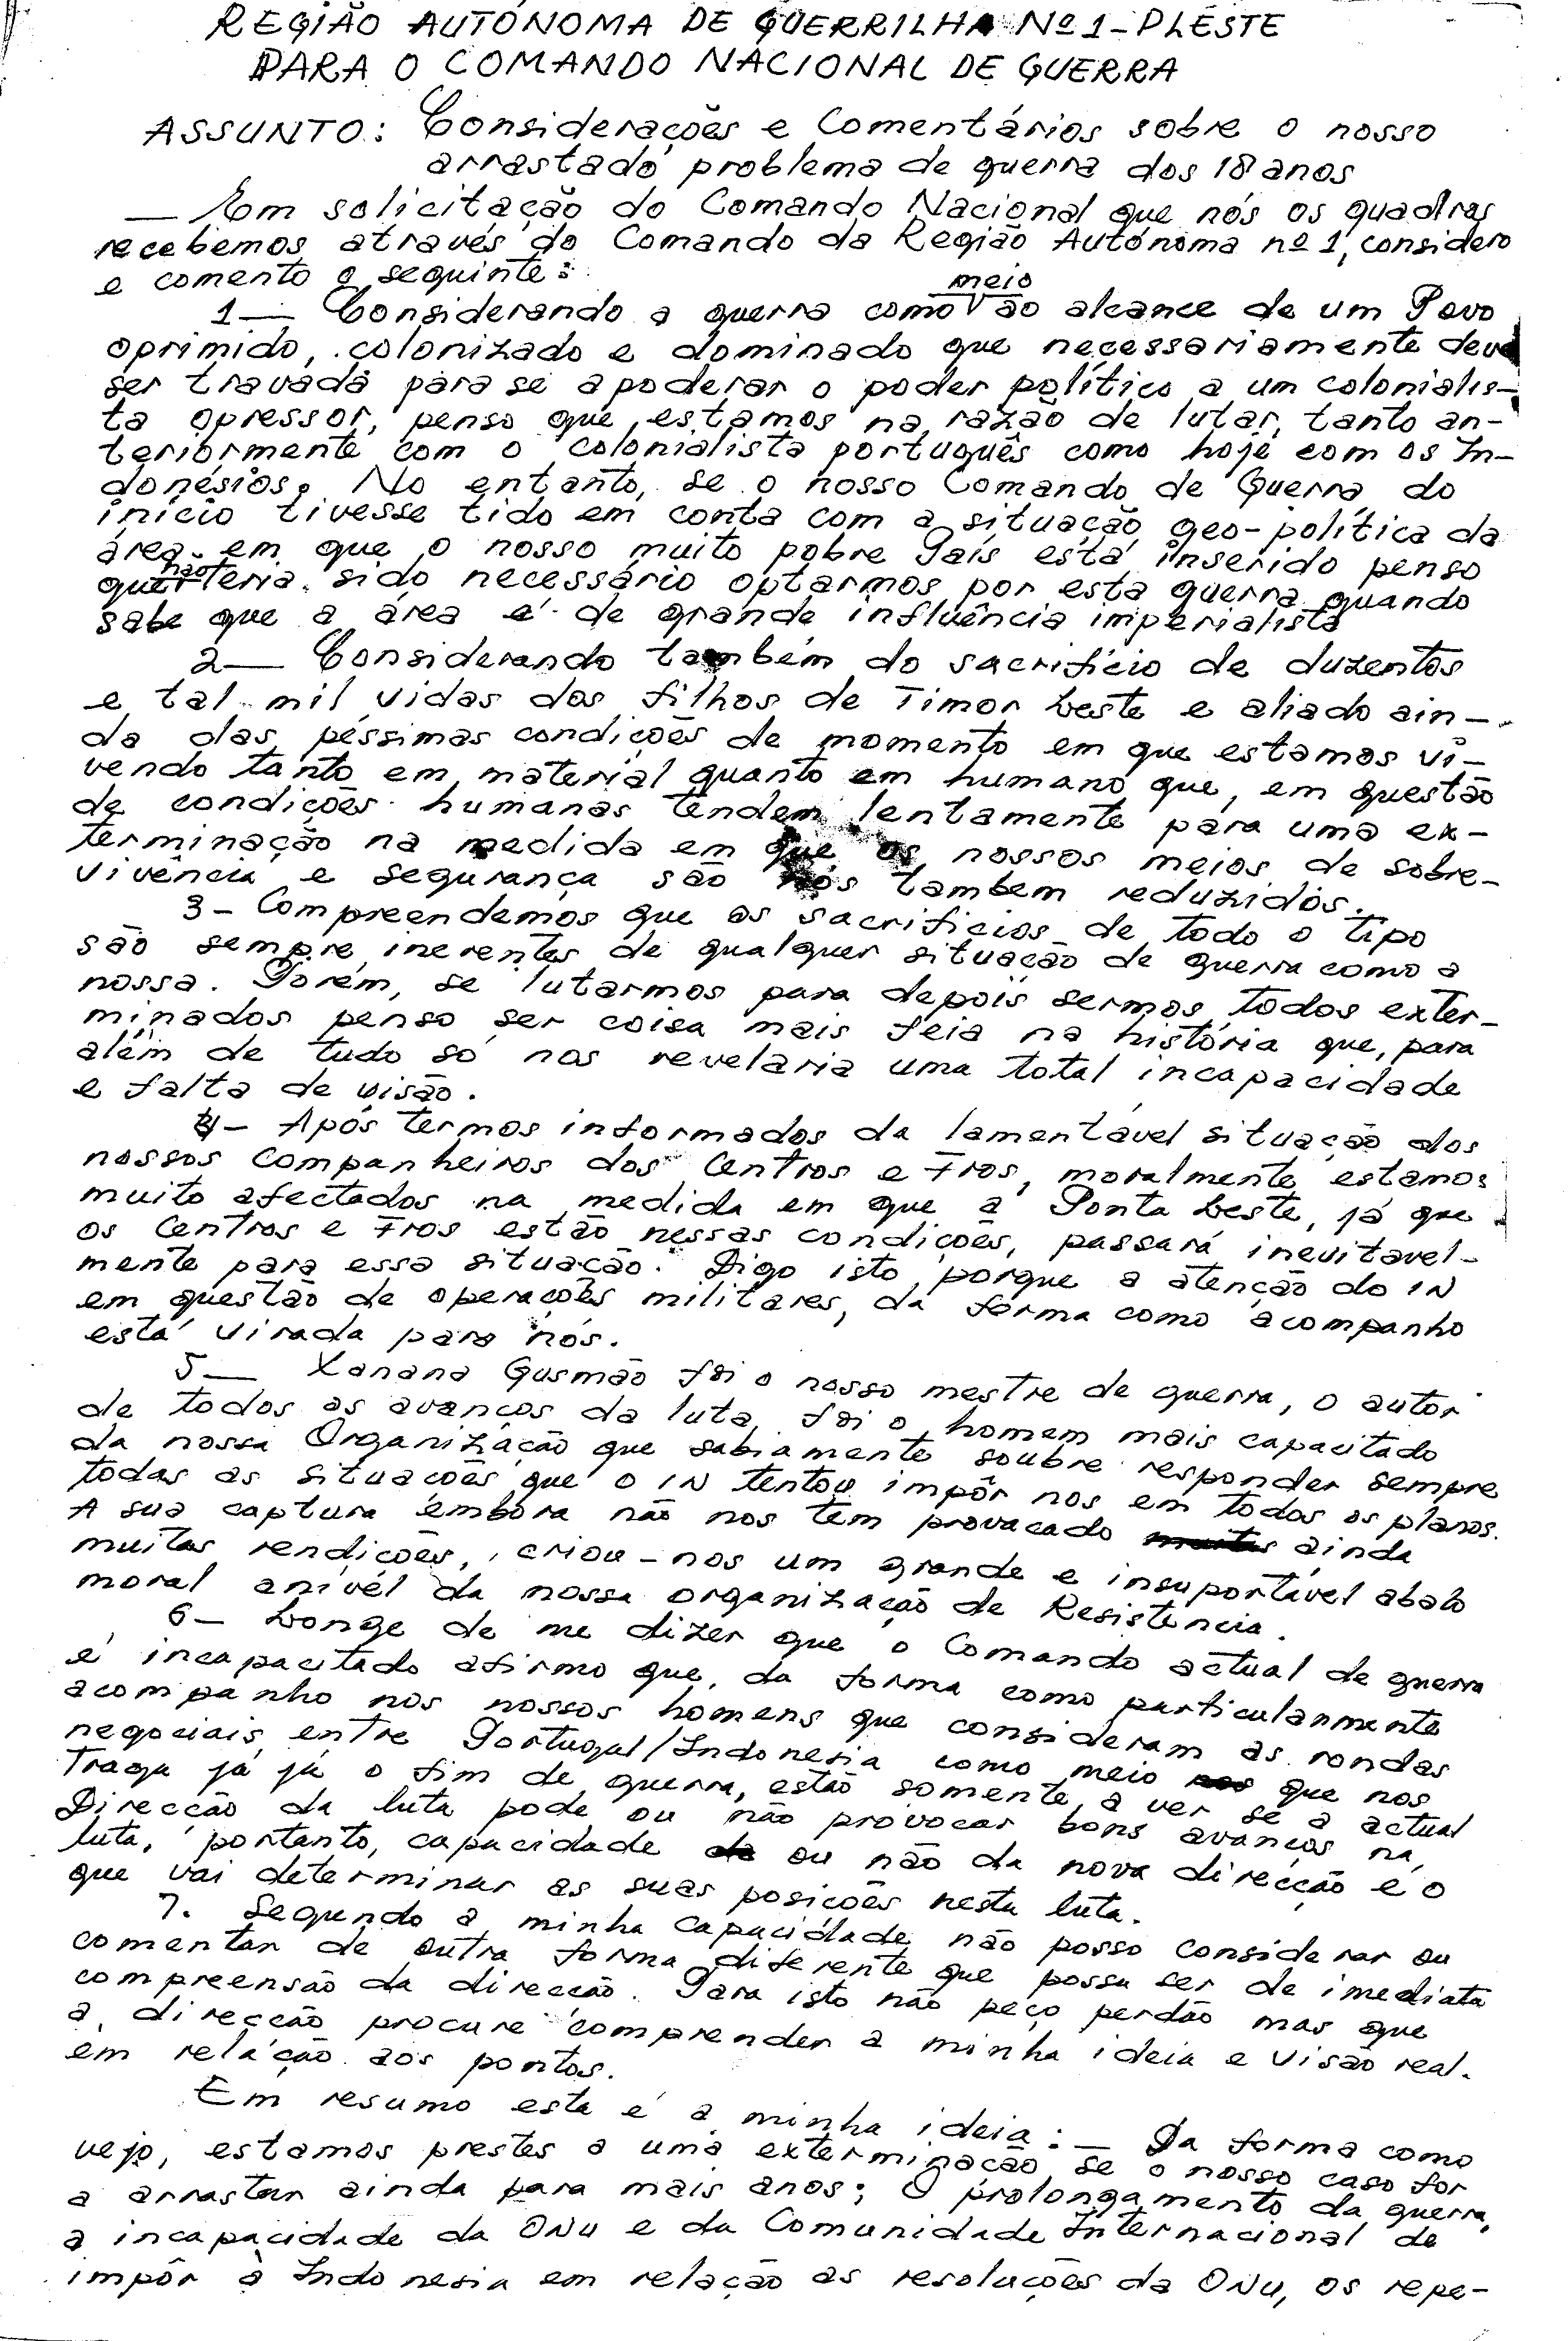 REGIÃO AUTÓNOMA DE GUERRILHA Nº 1 - PLESTE
PARA O COMANDO NACIONAL DE GUERRA
ASSUNTO: Considerações e Comentários sobre o nosso
arrastado problema de guerra dos 18 anos
— Em solicitação do Comando Nacional que nós os quadros
recebemos através do Comando da Região Autónoma nº 1, considero
e comento o seguinte:
meio
1 — Considerando a guerra como V ao alcance de um Povo
oprimido, colonizado e dominado que necessariamente deve
ser travada para se apoderar o poder político a um colonialis-
ta opressor, penso que estamos na razão de lutar, tanto an-
teriormente com o colonialista português como hoje com os In-
donésios. No entanto, se o nosso Comando de Guerra do
início tivesse tido em conta com a situação geo-política da
área em que o nosso muito pobre País está inserido penso
que não teria sido necessário optarmos por esta guerra quando
sabe que a área é de grande influência imperialista
2 — Considerando também do sacrifício de duzentos
e tal mil vidas dos filhos de Timor Leste e aliado ain-
da das péssimas condições de momento em que estamos vi-
vendo tanto em material quanto em humano que, em questão
de condições humanas tendem lentamente para uma ex-
terminação na medida em que os nossos meios de sobre-
vivência e segurança são nós tambem reduzidos.
3 - Compreendemos que os sacrifícios de todo o tipo
são sempre inerentes de qualquer situação de guerra como a
nossa. Porém, se lutarmos para depois sermos todos exter-
minados penso ser coisa mais feia na história que, para
além de tudo só nos revelaria uma total incapacidade
e falta de visão.
4 - Após termos informados da lamentável situação dos
nossos companheiros dos Centros e Fros, moralmente estamos
muito afectados na medida em que a Ponta Leste, já que
os Centros e Fros estão nessas condições, passará inevitavel-
mente para essa situação. Digo isto, porque a atenção do IN
em questão de operações militares, da forma como acompanho
está virada para nós.
5 — Xanana Gusmão foi o nosso mestre de guerra, o autor
de todos os avanços da luta, foi o homem mais capacitado
da nossa Organização que sabiamente soubre responder sempre
todas as situações que o IN tentou impôr nos em todos os planos.
A sua captura embora não nos tem provacado ainda
muitas rendições, criou-nos um grande e insuportável abalo
moral anível da nossa organização de Resistência.
6 - Longe de me dizer que o Comando actual de guerra
é incapacitado afirmo que, da forma como particularmente
acompanho nos nossos homens que consideram as rondas
negociais entre Portugal/Indonesia como meio que nos
traga já já o fim de guerra, estão somente a ver se a actual
Direcção da luta pode ou não provocar bons avanços na
luta, portanto, capacidade ou não da nova direcção é o
que vai determinar as suas posições nesta luta.
7. Segundo a minha capacidade não posso considerar ou
comentar de outra forma diferente que possa ser de imediata
compreensão da direcção. Para isto não peço perdão mas que
a direcção procure comprender a minha ideia e visão real
em relação aos pontos.
Em resumo esta é a minha ideia: — Da forma como
vejo, estamos prestes a uma exterminação se o nosso caso for
a arrastar ainda para mais anos; O prolongamento da guerra,
a incapacidade da ONU e da Comunidade Internacional de
impôr à Indonesia em relação as resoluções da ONU, os repe-